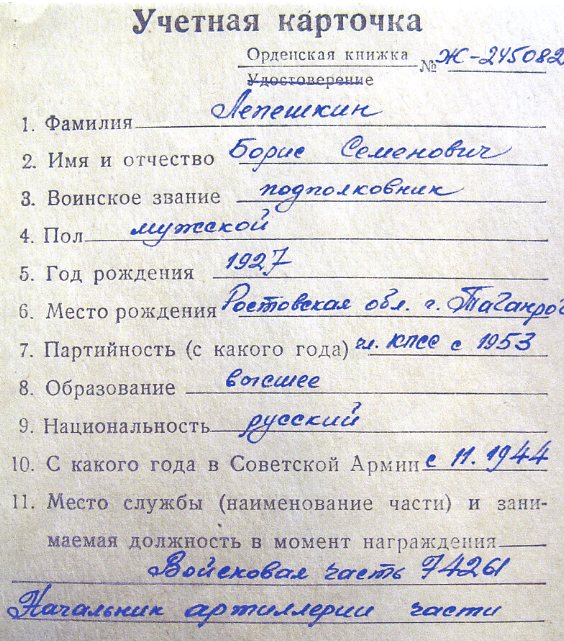 Учетная карточка
Орденская книжка № Ж-245082
Удостоверение
1. Фамилия Лепешкин
2. Имя и отчество Борис Семенович
3. Воинское звание подполковник
4. Пол мужской
5. Год рождения 1927
6. Место рождения Ростовская обл. г. Таганрог
7. Партийность (с какого года) чл. КПСС с 1953
8. Образование высшее
9. Национальность русский
10. С какого года в Советской Армии с 11.1944
11. Место службы (наименование части) и зани-
маемая должность в момент награждения
Войсковая часть 74261
Начальник артиллерии части